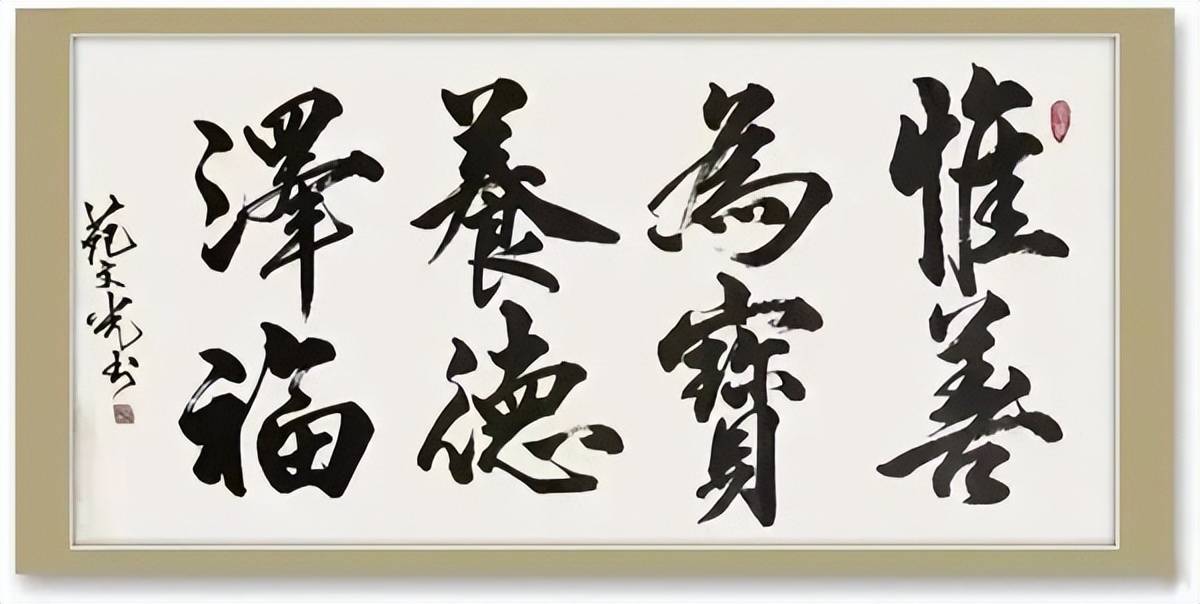 惟善
為寶
養德
澤福
范文光书